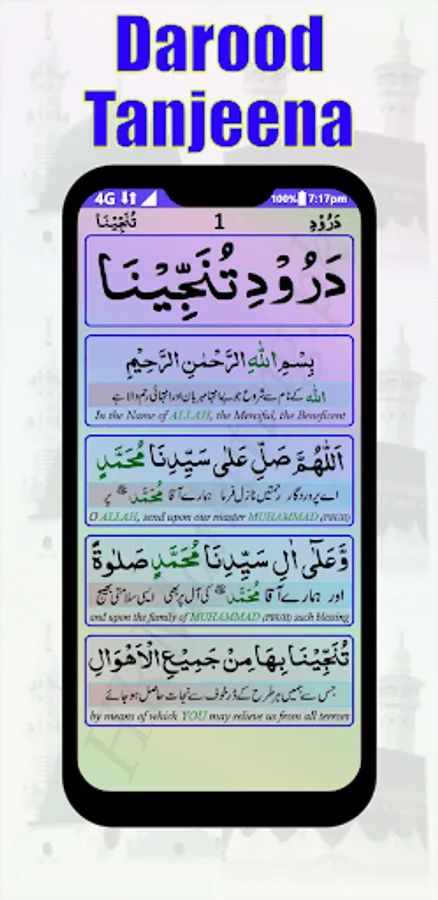 Darood
Tanjeena
4G 100% 7:17pm
دَرُوْدِ 1 تُنَجِّيْنَا
دَرُوْدِ تُنَجِّيْنَا
بِسْمِ اللّٰهِ الرَّحْمٰنِ الرَّحِيْمِ
اللہ کے نام سے شروع جو بے انتہا مہربان اور انتہائی رحم والا ہے
In the Name of ALLAH, the Merciful, the Beneficent
اَللّٰهُمَّ صَلِّ عَلٰى سَيِّدِنَا مُحَمَّدٍ
اے پروردگار رحمتیں نازل فرما ہمارے آقا مُحَمَّد ﷺ پر
O ALLAH, send upon our master MUHAMMAD (PBUH)
وَّعَلٰٓى اٰلِ سَيِّدِنَا مُحَمَّدٍ صَلٰوةً
اور ہمارے آقا مُحَمَّد ﷺ کی آل پر بھی ایسی سلامتی بھیج
and upon the family of MUHAMMAD (PBUH) such blessing
تُنَجِّيْنَا بِهَا مِنْ جَمِيْعِ الْاَهْوَالِ
جس سے ہمیں ہر طرح کے ڈر خوف سے نجات حاصل ہو جائے
by means of which YOU may relieve us from all terrors